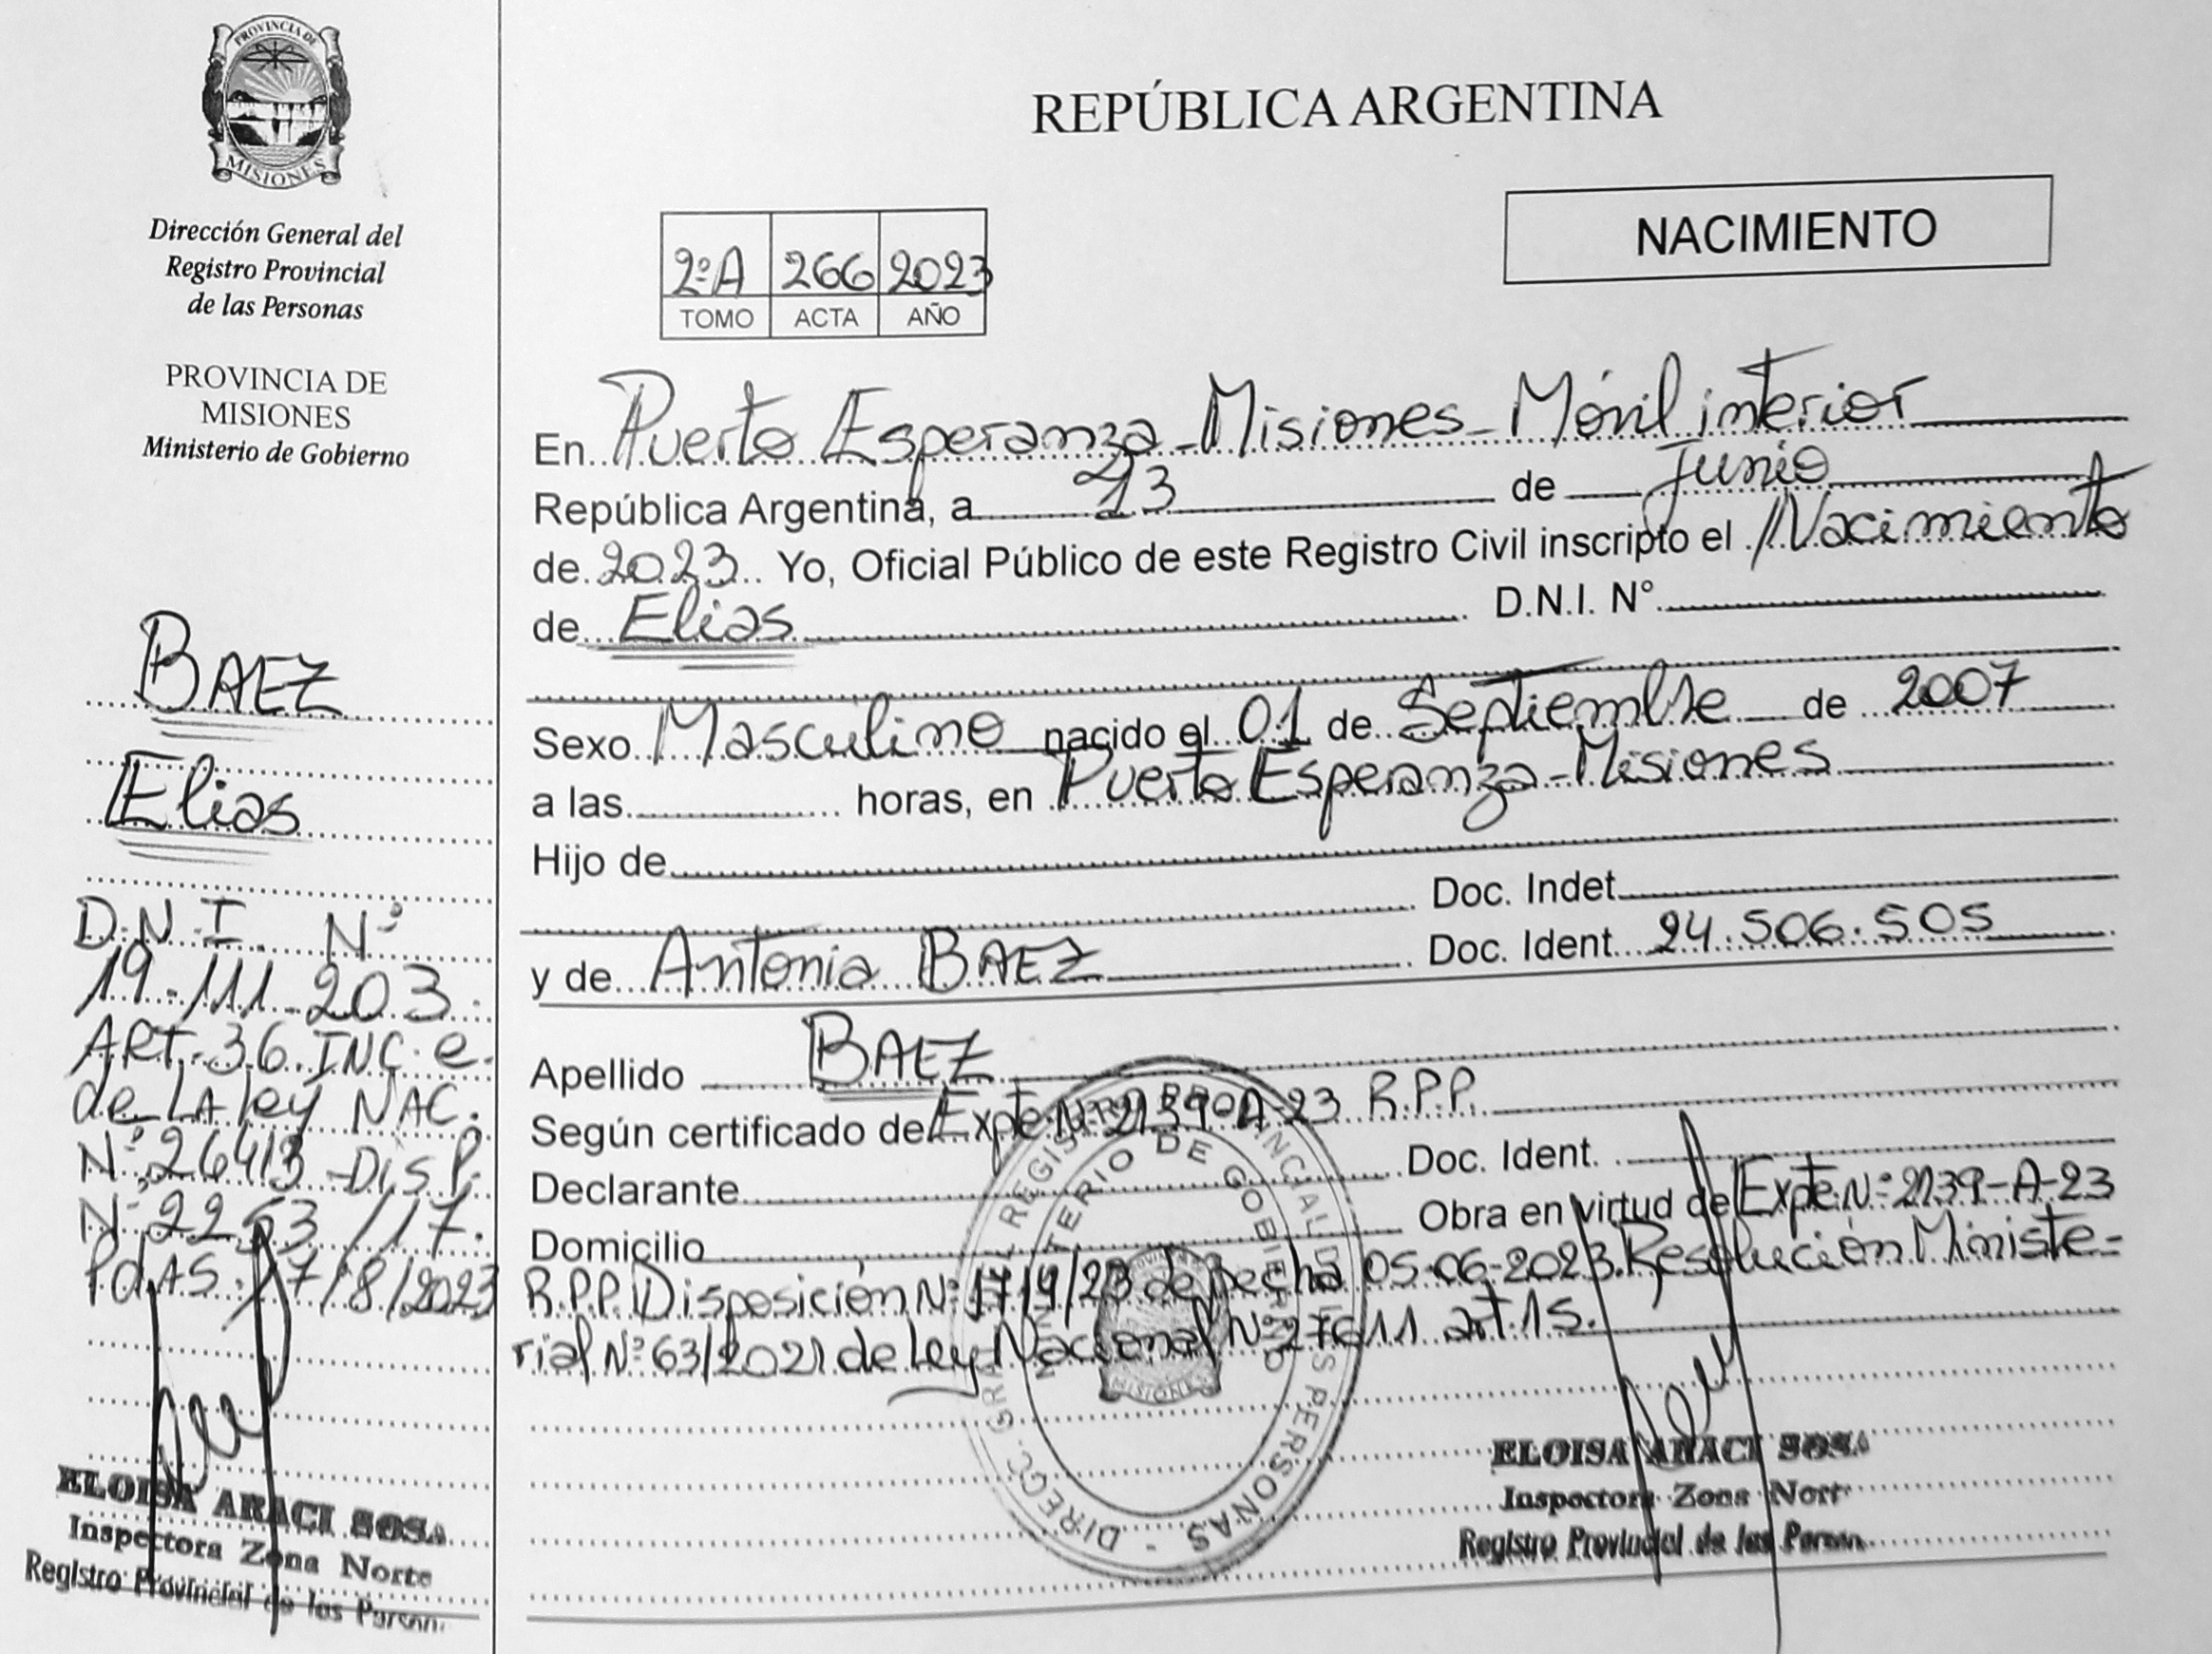 PROVINCIA DE
MISIONES
Dirección General del
Registro Provincial
de las Personas
PROVINCIA DE
MISIONES
Ministerio de Gobierno
BAEZ
Elias
D.N.I. Nº
19.111.203.
ART. 36. INC. e.
de LA ley NAC.
Nº 26413 - DISP.
Nº 2263 /17.
Pdas. 17/8/2023
ELOISA ARACI SOSA
Inspectora Zona Norte
Registro Provincial de las Person.
REPÚBLICA ARGENTINA
NACIMIENTO
2º A 266 2023
TOMO ACTA AÑO
En Puerto Esperanza - Misiones - Móvil interior
República Argentina, a 23 de Junio
de 2023 Yo, Oficial Público de este Registro Civil inscripto el Nacimiento
de Elias D.N.I. N°
Sexo Masculino nacido el 01 de Septiembre de 2007
a las horas, en Puerto Esperanza - Misiones
Hijo de
Doc. Indet
y de Antonia BAEZ Doc. Ident. 24.506.505
Apellido BAEZ
Según certificado de Expte Nº 2139-A-23 R.P.P.
Declarante Doc. Ident.
Domicilio Obra en virtud de Expte Nº 2139-A-23
R.P.P. Disposición Nº de fecha 05-06-2023. Resolución Ministe-
rial Nº 63/2021 de ley Nacional Nº 27611 art. 15.
DIRECC. GRAL. REGISTRO PROVINCIAL DE LAS PERSONAS -
MINISTERIO DE GOBIERNO
MISIONES
ELOISA ARACI SOSA
Inspectora Zona Nort
Registro Provincial de las Person.